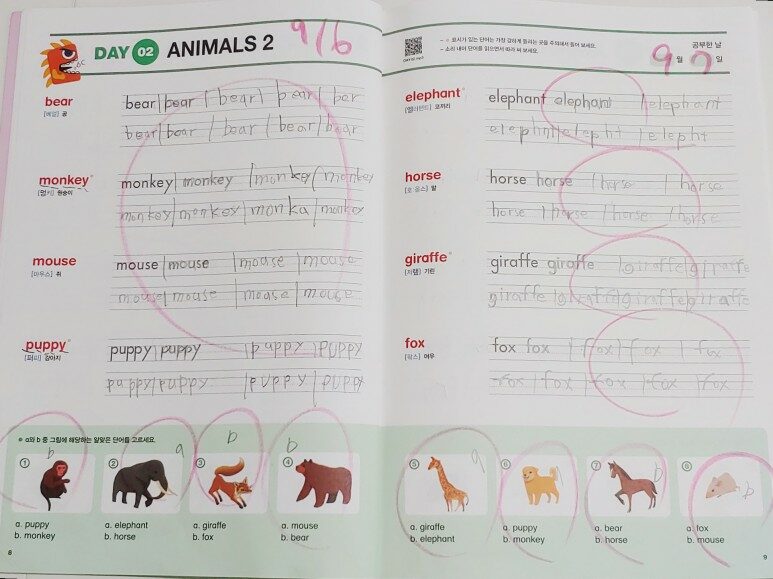 DAY 02 ANIMALS 2
9/6
bear
[베얼] 곰
bear bear bear bear ber
bear bear bear bear bear
monkey
[멍키] 원숭이
monkey monkey monka monkey
monkey monkey monka monkey
mouse
[마우스] 쥐
mouse mouse mouse mouse
mouse mouse mouse mouse
puppy
[퍼피] 강아지
puppy puppy puppy puppy
puppy puppy puppy puppy
● a와 b 중 그림에 해당하는 알맞은 단어를 고르세요.
① b
a. puppy
b. monkey
② a
a. elephant
b. horse
③ b
a. giraffe
b. fox
④ b
a. mouse
b. bear
8
- 표시가 있는 단어는 가장 강하게 들리는 곳을 주의해서 들어 보세요.
- 소리 내어 단어를 읽으면서 따라 써 보세요.
공부한 날
9월 7일
elephant
[엘러펀트] 코끼리
elephant elephant elephant
horse
[호올스] 말
horse horse horse horse
horse horse horse horse
giraffe
[저램] 기린
giraffe giraffe giraffe giraffe
giraffe giraffe giraffe giraffe
fox
[팍스] 여우
fox fox fox fox fox
fox fox fox fox fox
⑤ a
a. giraffe
b. elephant
⑥ a
a. puppy
b. monkey
⑦ b
a. bear
b. horse
⑧ b
a. fox
b. mouse
9